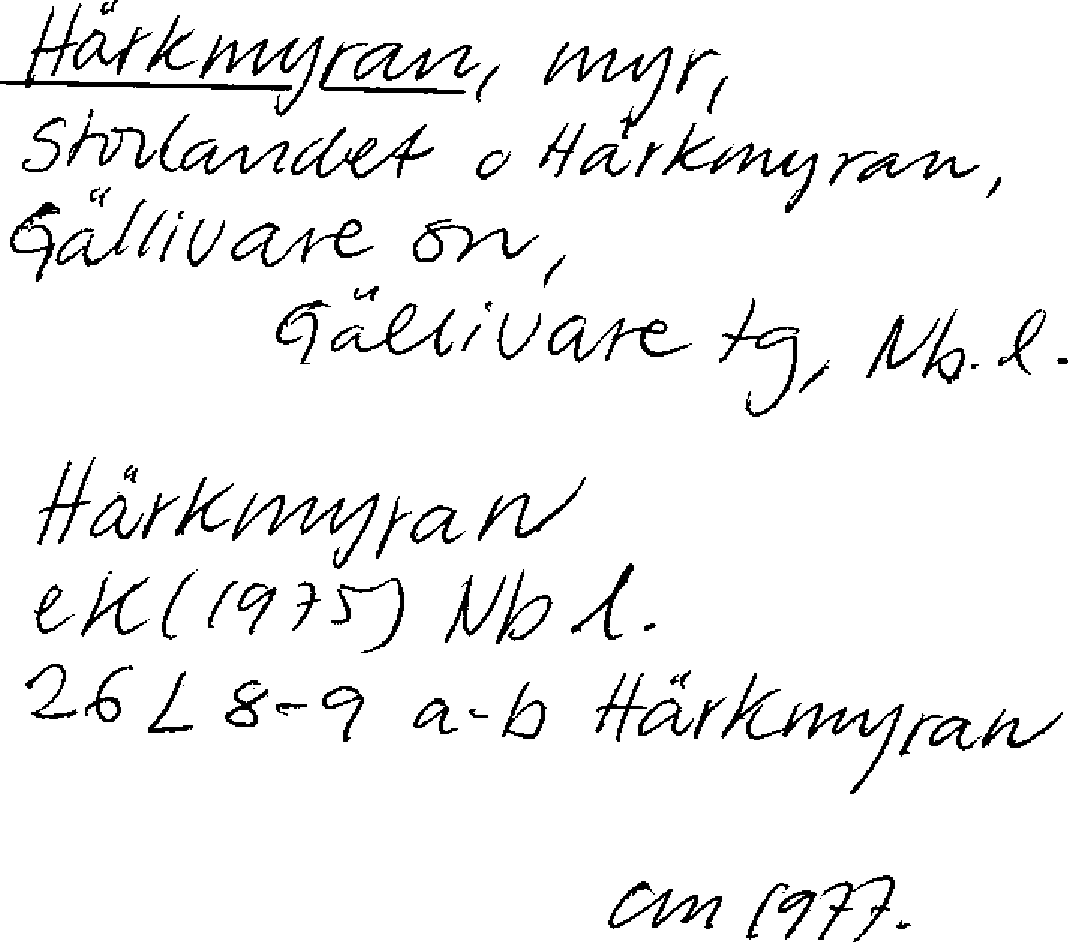 Härkmyran, myr,
Storlandet o Härkmyran,
Gällivare sn,
Gällivare tg, Nb. l.
Härkmyran
eK (1975) Nb l.
26 L 8-9 a-b Härkmyran
CM 1977.